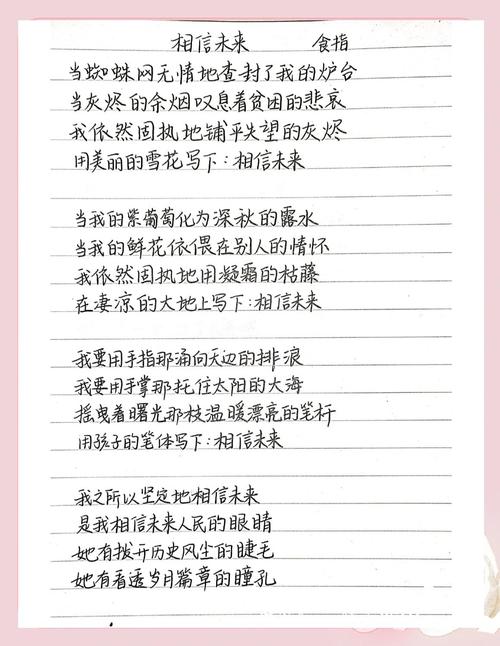 相信未来 食指
当蜘蛛网无情地查封了我的炉台
当灰烬的余烟叹息着贫困的悲哀
我依然固执地铺平失望的灰烬
用美丽的雪花写下:相信未来
当我的紫葡萄化为深秋的露水
当我的鲜花依偎在别人的情怀
我依然固执地用凝霜的枯藤
在凄凉的大地上写下:相信未来
我要用手指那涌向天边的排浪
我要用手掌那托住太阳的大海
摇曳着曙光那枝温暖漂亮的笔杆
用孩子的笔体写下:相信未来
我之所以坚定地相信未来
是我相信未来人民的眼睛
她有拨开历史风尘的睫毛
她有看透岁月篇章的瞳孔